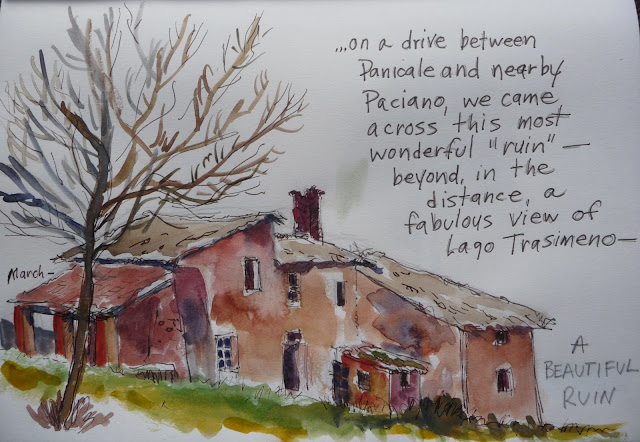 ...on a drive between
Panicale and nearby
Paciano, we came
across this most
wonderful "ruin" —
beyond, in the
distance, a
fabulous view of
Lago Trasimeno—
March—
A
BEAUTIFUL
RUIN